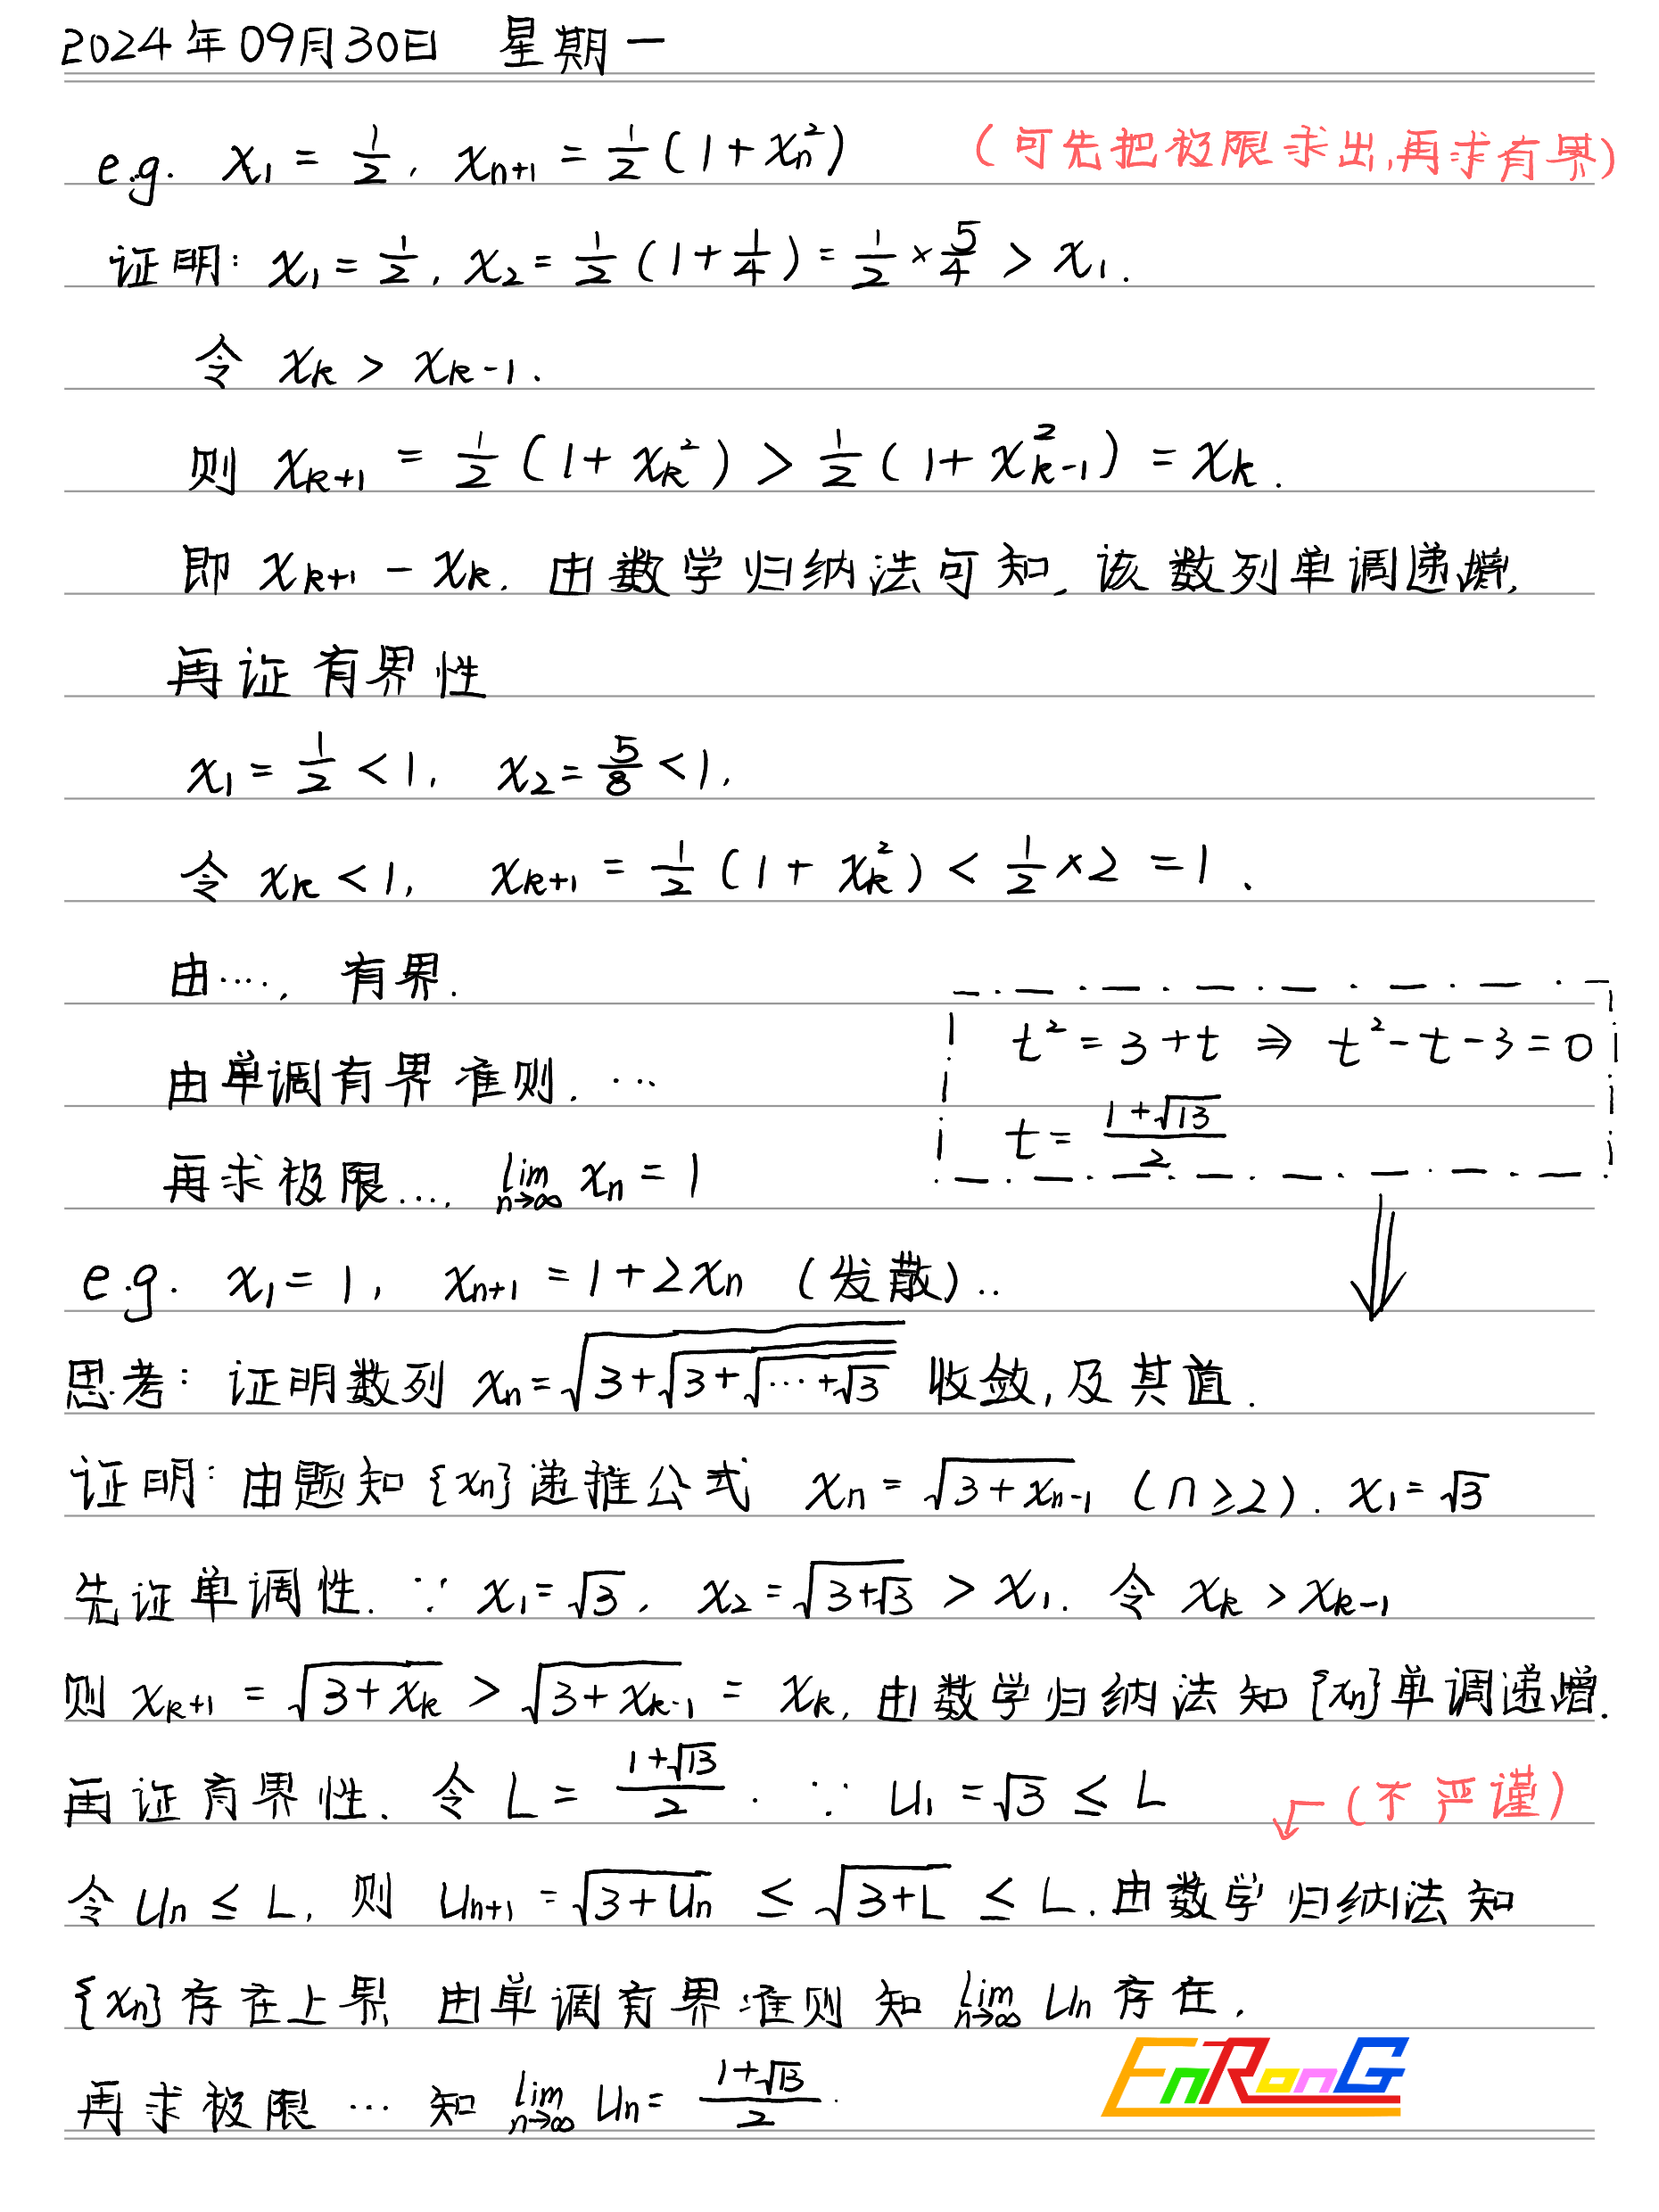 2024年09月30日 星期一
e.g. x₁ = 1/2, xₙ₊₁ = 1/2(1+xₙ²) (可先把极限求出,再求有界)
证明: x₁ = 1/2, x₂ = 1/2(1+1/4) = 1/2 × 5/4 > x₁.
令 xₖ > xₖ₋₁.
则 xₖ₊₁ = 1/2(1+xₖ²) > 1/2(1+xₖ₋₁²) = xₖ.
即 xₖ₊₁ - xₖ. 由数学归纳法可知, 该数列单调递增.
再证有界性
x₁ = 1/2 < 1, x₂ = 5/8 < 1,
令 xₖ < 1, xₖ₊₁ = 1/2(1+xₖ²) < 1/2 × 2 = 1.
由…, 有界.
由单调有界准则. …
再求极限…, lim n→∞ xₙ = 1
t² = 3+t ⇒ t²-t-3=0
t = (1+√13)/2
e.g. x₁ = 1, xₙ₊₁ = 1+2xₙ (发散)..
思考: 证明数列 xₙ = √(3+√(3+√(…+√3))) 收敛,及其值.
证明: 由题知 {xₙ} 递推公式 xₙ = √(3+xₙ₋₁) (n≥2). x₁ = √3
先证单调性. ∵ x₁ = √3, x₂ = √(3+√3) > x₁. 令 xₖ > xₖ₋₁
则 xₖ₊₁ = √(3+xₖ) > √(3+xₖ₋₁) = xₖ, 由数学归纳法知 {xₙ} 单调递增.
再证有界性. 令 L = (1+√13)/2. ∵ u₁ = √3 ≤ L (不严谨)
令 uₙ ≤ L, 则 uₙ₊₁ = √(3+uₙ) ≤ √(3+L) ≤ L. 由数学归纳法知
{xₙ} 存在上界 由单调有界准则知 lim n→∞ uₙ 存在.
再求极限 … 知 lim n→∞ uₙ = (1+√13)/2.
EnRonG